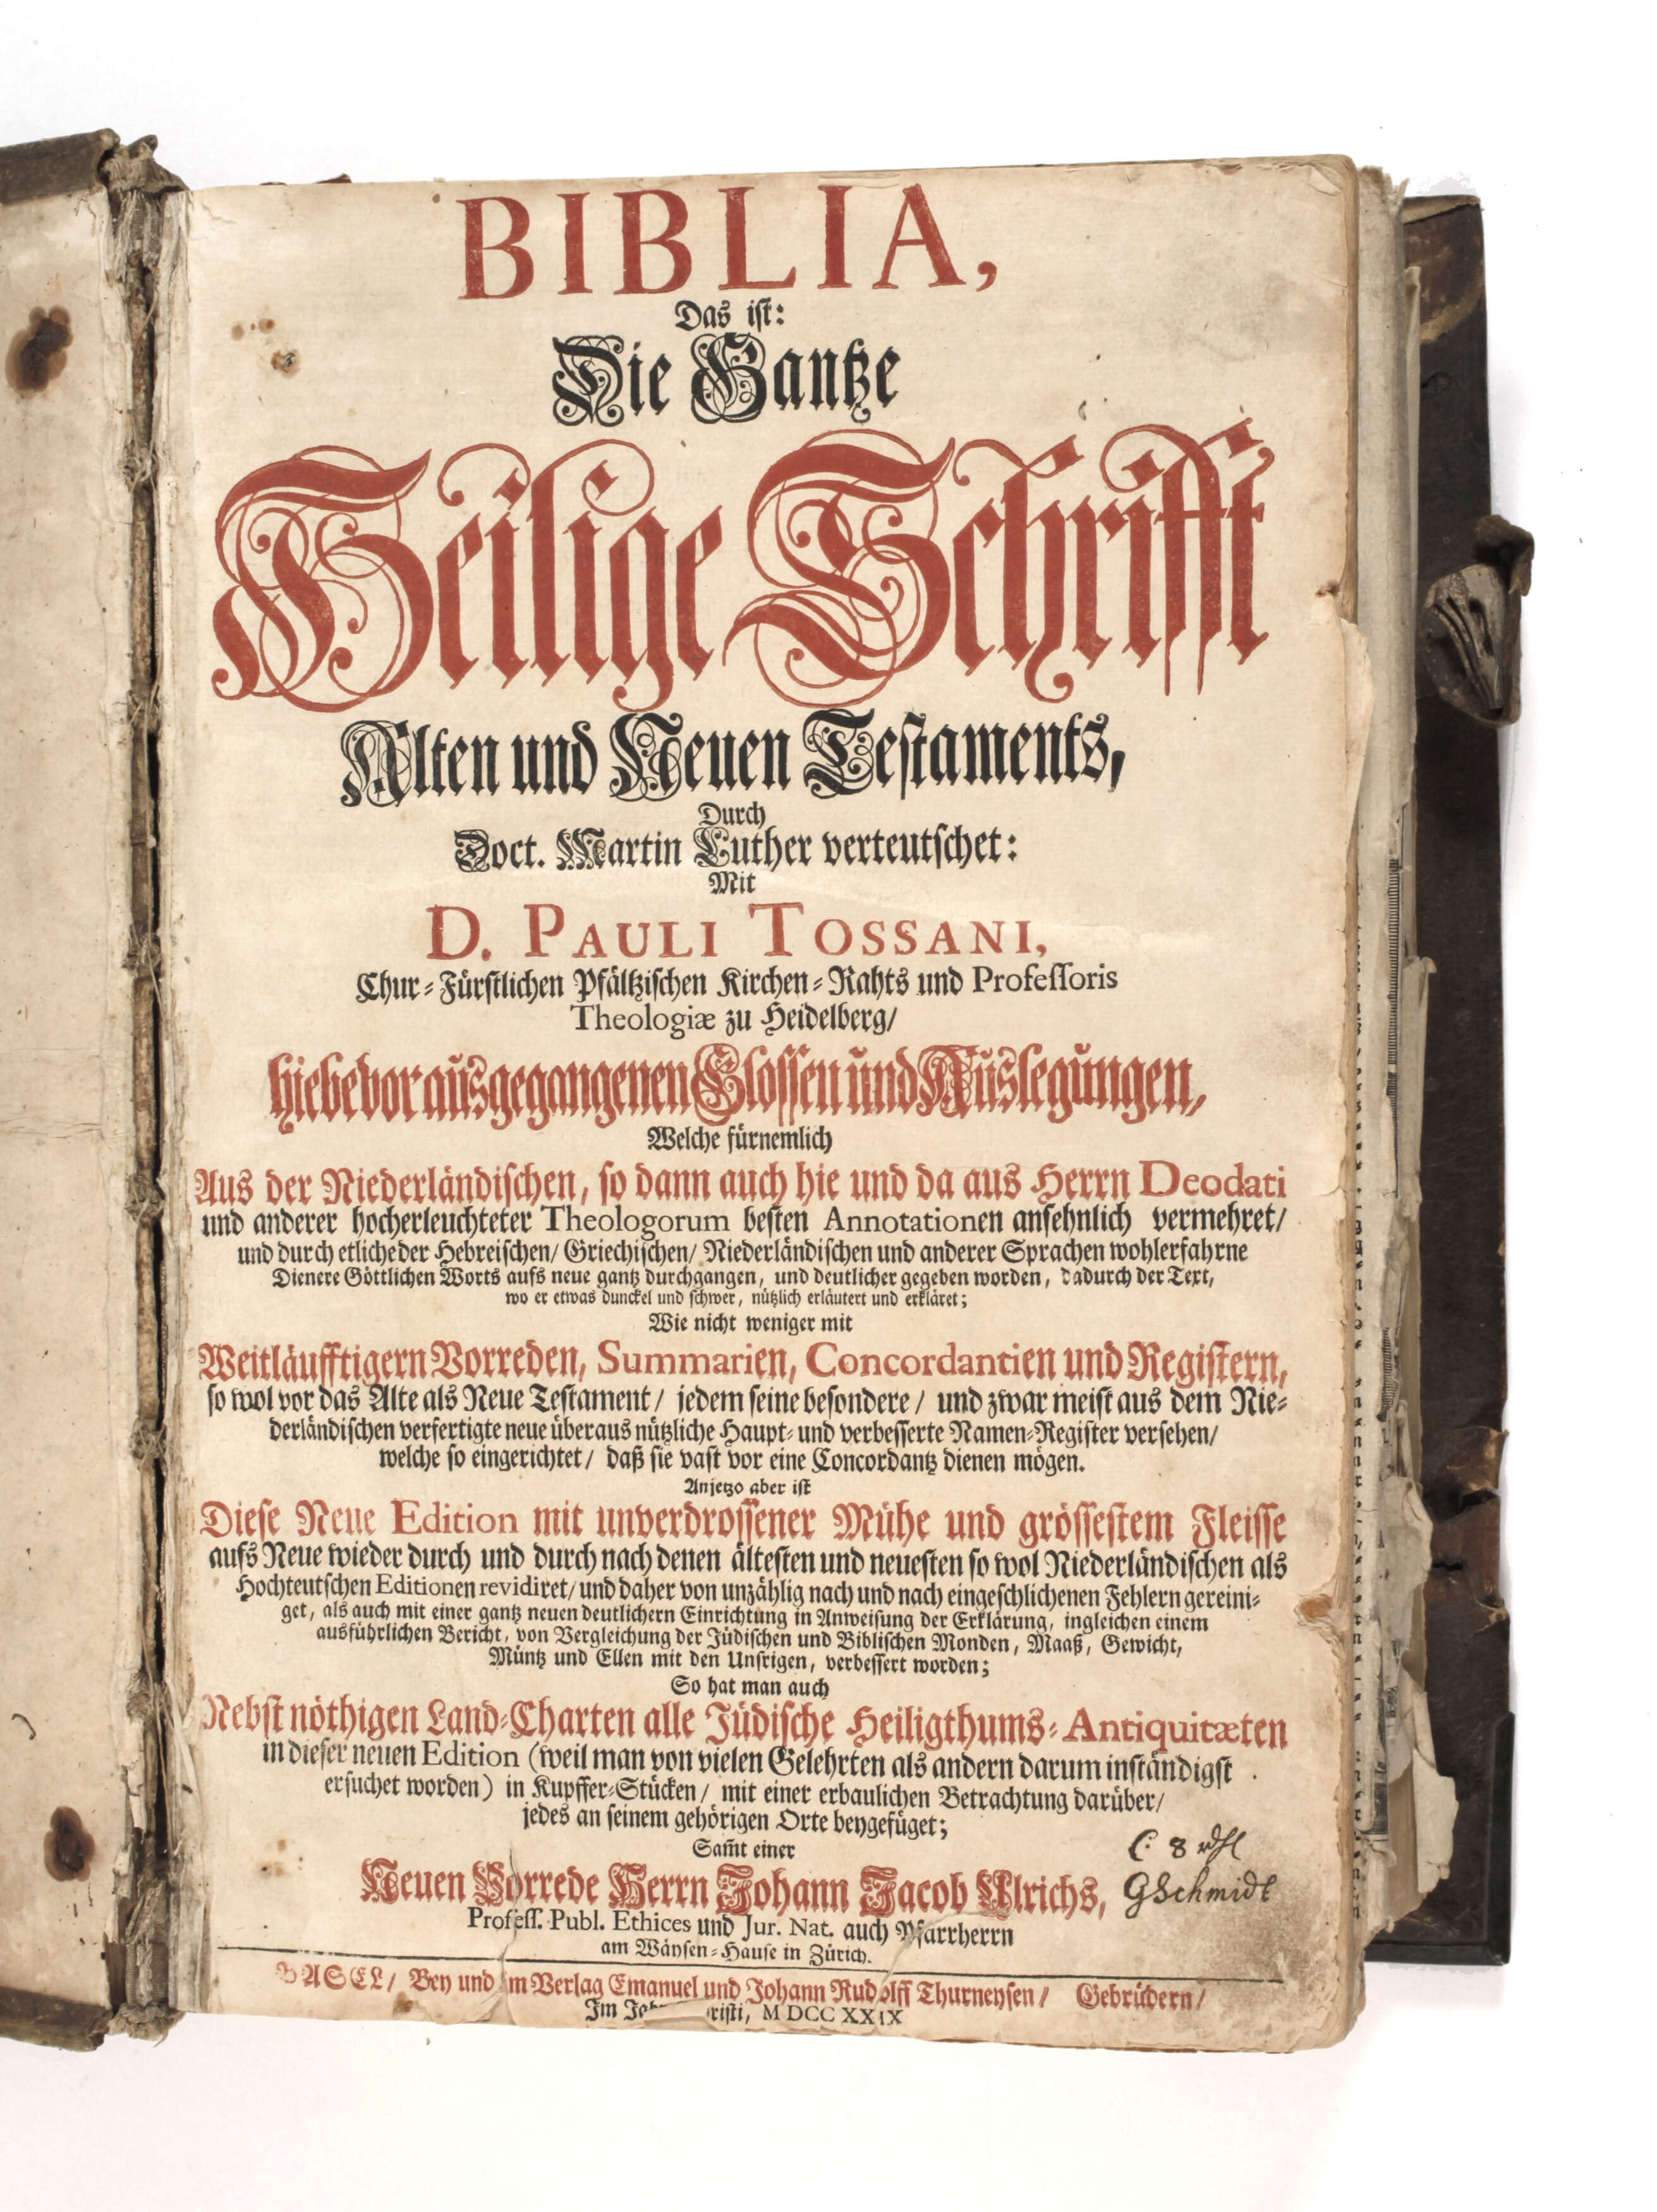 BIBLIA,
Das ist:
Die Gantze
Heilige Schrifft
Alten und Neuen Testaments,
Durch
Doct. Martin Luther verteutschet:
Mit
D. PAULI TOSSANI,
Chur-Fürstlichen Pfältzischen Kirchen-Rahts und Professoris
Theologiæ zu Heidelberg/
hiebevor ausgegangenen Glossen und Auslegungen,
Welche fürnemlich
Aus der Niederländischen, so dann auch hie und da aus Herrn Deodati
und anderer hocherleuchteter Theologorum besten Annotationen ansehnlich vermehret/
und durch etliche der Hebreischen/ Griechischen/ Niederländischen und anderer Sprachen wohlerfahrne
Dienere Göttlichen Worts aufs neue gantz durchgangen, und deutlicher gegeben worden, dadurch der Text,
wo er etwas dunckel und schwer, nützlich erläutert und erkläret;
Wie nicht weniger mit
Weitläufftigern Vorreden, Summarien, Concordantien und Registern,
so wol vor das Alte als Neue Testament/ jedem seine besondere/ und zwar meist aus dem Nie-
derländischen verfertigte neue überaus nützliche Haupt- und verbesserte Namen-Register versehen/
welche so eingerichtet/ daß sie vast vor eine Concordantz dienen mögen.
Anjetzo aber ist
Diese Neue Edition mit unverdrossener Mühe und grössestem Fleisse
aufs Neue wieder durch und durch nach denen ältesten und neuesten so wol Niederländischen als
Hochteutschen Editionen revidiret/ und daher von unzählig nach und nach eingeschlichenen Fehlern gereini-
get, als auch mit einer gantz neuen deutlichern Einrichtung in Anweisung der Erklärung, ingleichen einem
ausführlichen Bericht, von Vergleichung der Jüdischen und Biblischen Monden, Maaß, Gewicht,
Müntz und Ellen mit den Unsrigen, verbessert worden;
So hat man auch
Nebst nöthigen Land-Charten alle Jüdische Heiligthums-Antiquitæten
in dieser neuen Edition (weil man von vielen Gelehrten als andern darum inständigst
ersuchet worden) in Kupffer-Stücken/ mit einer erbaulichen Betrachtung darüber/
jedes an seinem gehörigen Orte beygefüget;
Sam̃t einer
Neuen Vorrede Herrn Johann Jacob Ulrichs,
GSchmidt
Profess. Publ. Ethices und Jur. Nat. auch Pfarrherrn
am Wäysen-Hause in Zürich.
BASEL/ Bey und im Verlag Emanuel und Johann Rudolff Thurneysen/ Gebrüdern/
Im MDCCXXIX